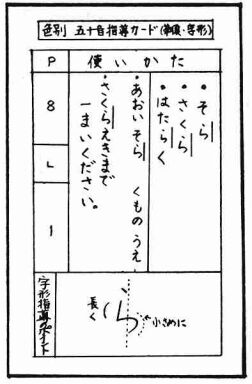 色別 五十音指導カード(筆順・字形)
P
使いかた
8
L
1
・そら
・さくら
・はたらく
・あおいそら くものうえ
・さくらえきまで
一まいください。
字形指導のポイント
長く
ら
小さめに